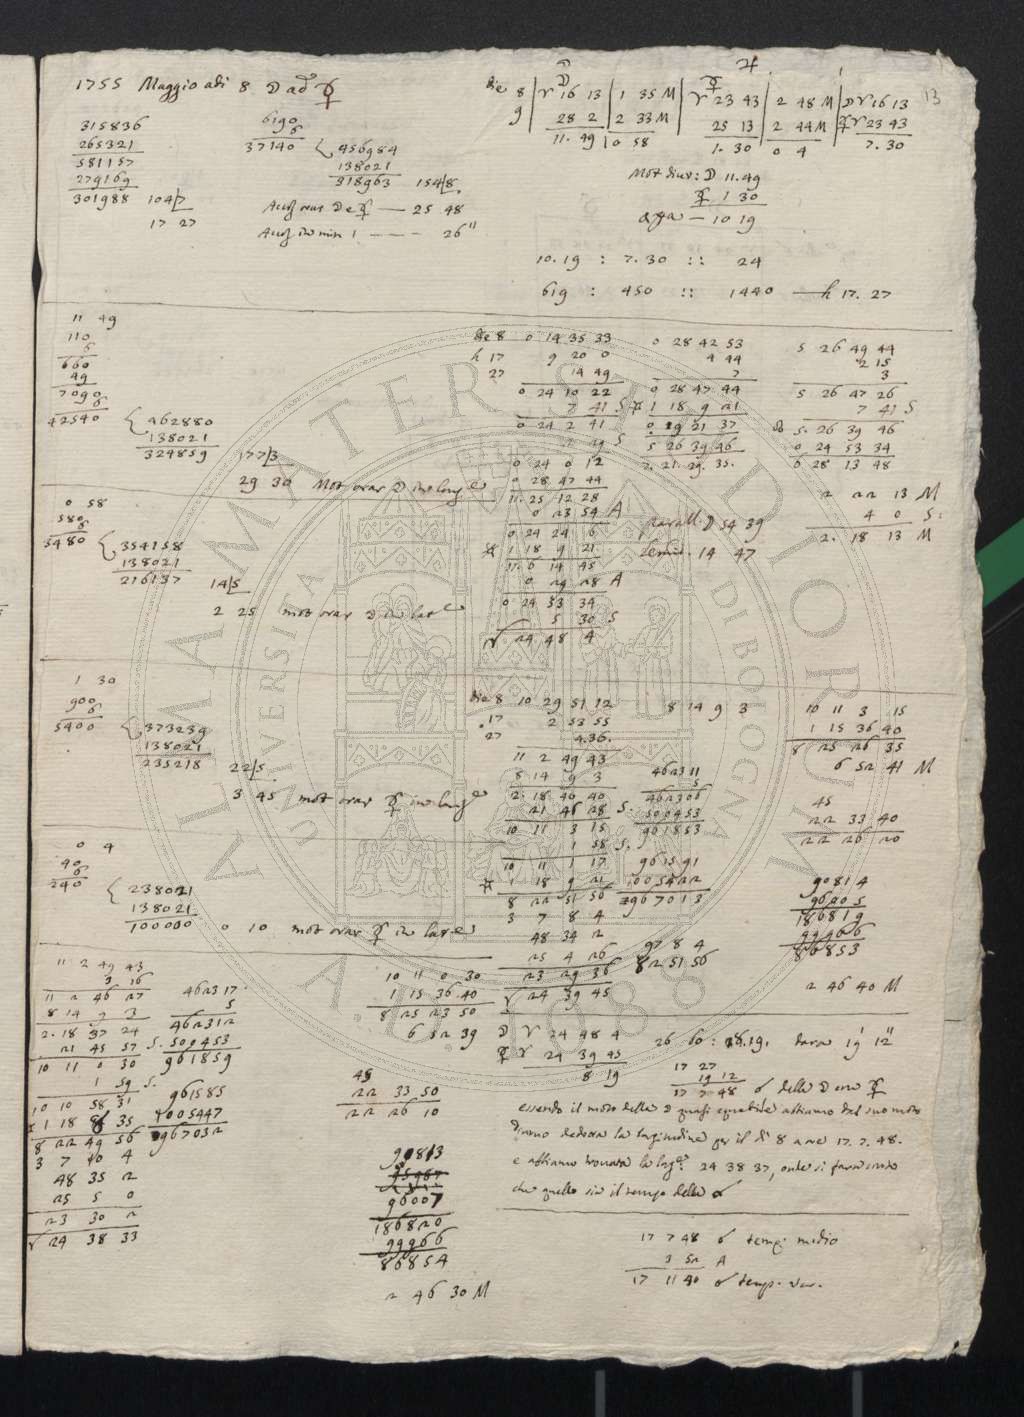 13
1755 Maggio adi 8 ☽ ad ☿
315836
265321
581157
279169
301988 104/7
17 27
6190
6
37140
456984
138021
318963 154/8
☽ e ☿ — 25 48
in min 1 - - - 26"
☽ ☿ ♃
die 8 | ♈ 16 13 | 1 35 M | ♈ 23 43 | 2 48 M | ☽ ♈ 16 13
9 | 28 2 | 2 33 M | 25 13 | 2 44 M | ☿ ♈ 23 43
11. 49 | 0 58 | 1. 30 | 0 4 | 7. 30
Mot diur: ☽ 11. 49
☿ 1 30
— 10 19
10. 19 : 7. 30 :: 24
619 : 450 :: 1440 — h 17. 27
11 49
110
6
660
49
7090
6
42540
462880
138021
324859 177/3
29 30 Mot orar ☽ in long
0 58
580
6
3480
354158
138021
216137 14/5
2 25 mot orar ☽ in lat
die 8 0 14 35 33
h 17 9 20 0
27 14 49
0 24 10 22
7 41 S
0 24 2 41
2 29 S
0 24 0 12
0 28 47 44
11. 25 12 28
0 23 54 A
0 24 24 6
1 18 9 21
11. 6 14 45
0 29 28 A
0 24 53 34
5 30 S
♈ 24 48 4
0 28 42 53
4 44
7
0 28 47 44
1 18 9 21
0 29 21 37
5 26 39 46
7. 21. 29. 35.
parall. ☽ 54 39
Semid. 14 47
5 26 49 44
2 15
3
5 26 47 26
7 41 S
5. 26 39 46
0 24 53 34
6 28 13 48
2 22 13 M
4 0 S.
2. 18 13 M
1 30
900
6
5400
373239
138021
235218 22/5
3 45 mot orar ☿ in long
0 4
40
6
240
238021
138021
100000 0 10 mot orar ☿ in lat
die 8 10 29 51 12
17 2 53 55
27 4. 36.
11 2 49 43
8 14 9 3
2. 18 40 40
21 46 28 S.
10 11 3 15
1 58 S.
10 11 1 17
1 18 9 21
8 22 51 56
3 7 8 4
48 34 2
25 4 26
23 29 36
♈ 24 39 45
8 14 9 3
462311
5
462306
500453
961853
961591
1005422
1967013
97 8 4
82 51 56
10 11 3 15
1 15 36 40
8 25 26 35
6 52 41 M
45
22 33 40
22 26 20
90814
96005
186819
99966
86853
2 46 40 M
11 2 49 43
3 16
11 2 46 27
8 14 9 3
2. 18 37 24
21 45 57 S.
10 11 0 30
1 59 S.
10 10 58 31
1 18 8 35
8 22 49 56
3 7 10 4
48 35 2
25 5 0
23 30 2
♈ 24 38 33
462317
5
462312
500453
961859
961585
1005447
1967032
10 11 0 30
1 15 36 40
8 25 23 50
6 52 39
45
22 33 50
22 26 10
90813
96007
186820
99966
86854
2 46 30 M
☽ ♈ 24 48 4
☿ ♈ 24 39 45
8 19
26 60 : 8.19. dara 19' 12"
17 27
19 12
17 7 48 ☌ della ☽ con ☿
essendo il moto della ☽ quasi equabile abbiamo dal suo moto
diurno dedotta la longitudine per il dì 8 a ore 17. 7. 48.
e abbiamo trovata la long. 24 38 37, onde si farà
che quello sia il tempo della ☌
17 7 48 ☌ temp. medio
3 52 A
17 11 40 ☌ temp. ver.
ALMA MATER STUDIORUM
UNIVERSITÀ DI BOLOGNA
A.D. 1088